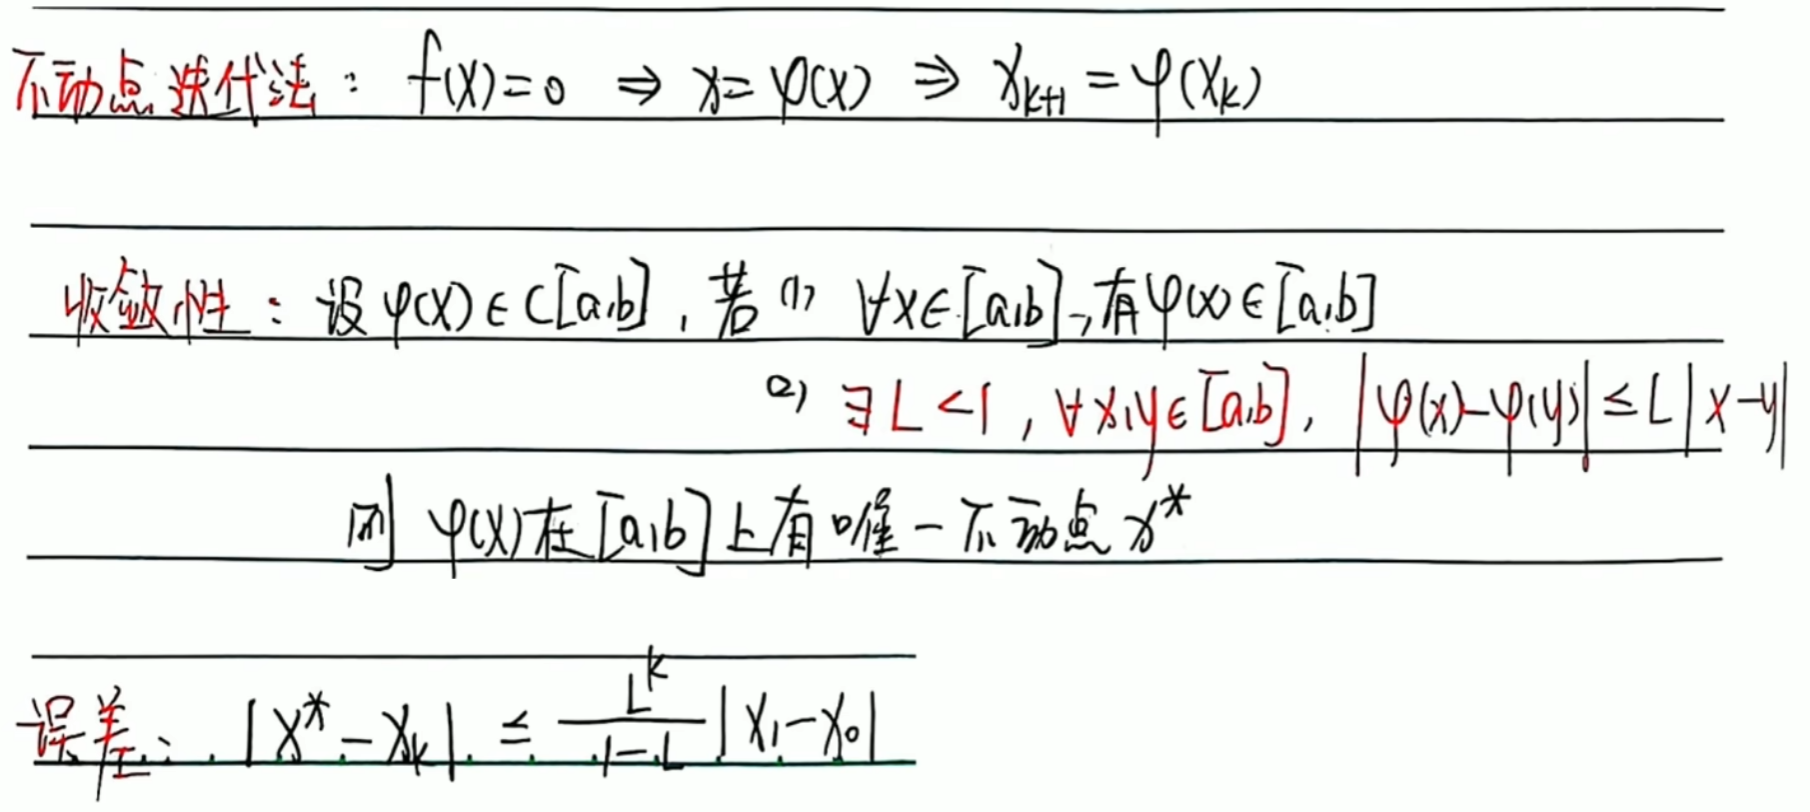 不动点迭代法： f(x)=0 ⇒ x=φ(x) ⇒ x_{k+1}=φ(x_k)
收敛性：设 φ(x)∈C[a,b]，若 (1) ∀x∈[a,b]，有φ(x)∈[a,b]
(2) ∃L<1，∀x,y∈[a,b]，|φ(x)-φ(y)|≤L|x-y|
则 φ(x)在[a,b]上有唯一不动点x*
误差： |x*-x_k| ≤ \frac{L^k}{1-L}|x_1-x_0|